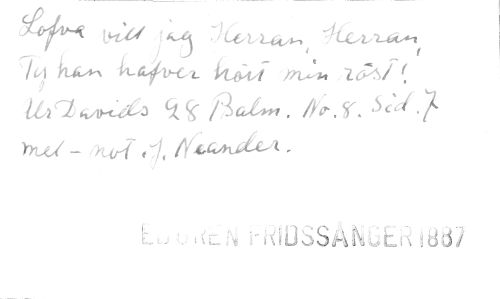 Lofva vill jag Herran, Herran,
Ty han hafver hört min röst!
Ur Davids 28 Psalm. No. 8. Sid. 7
mel - not. J. Neander.
FRIDSSÅNGER 1887